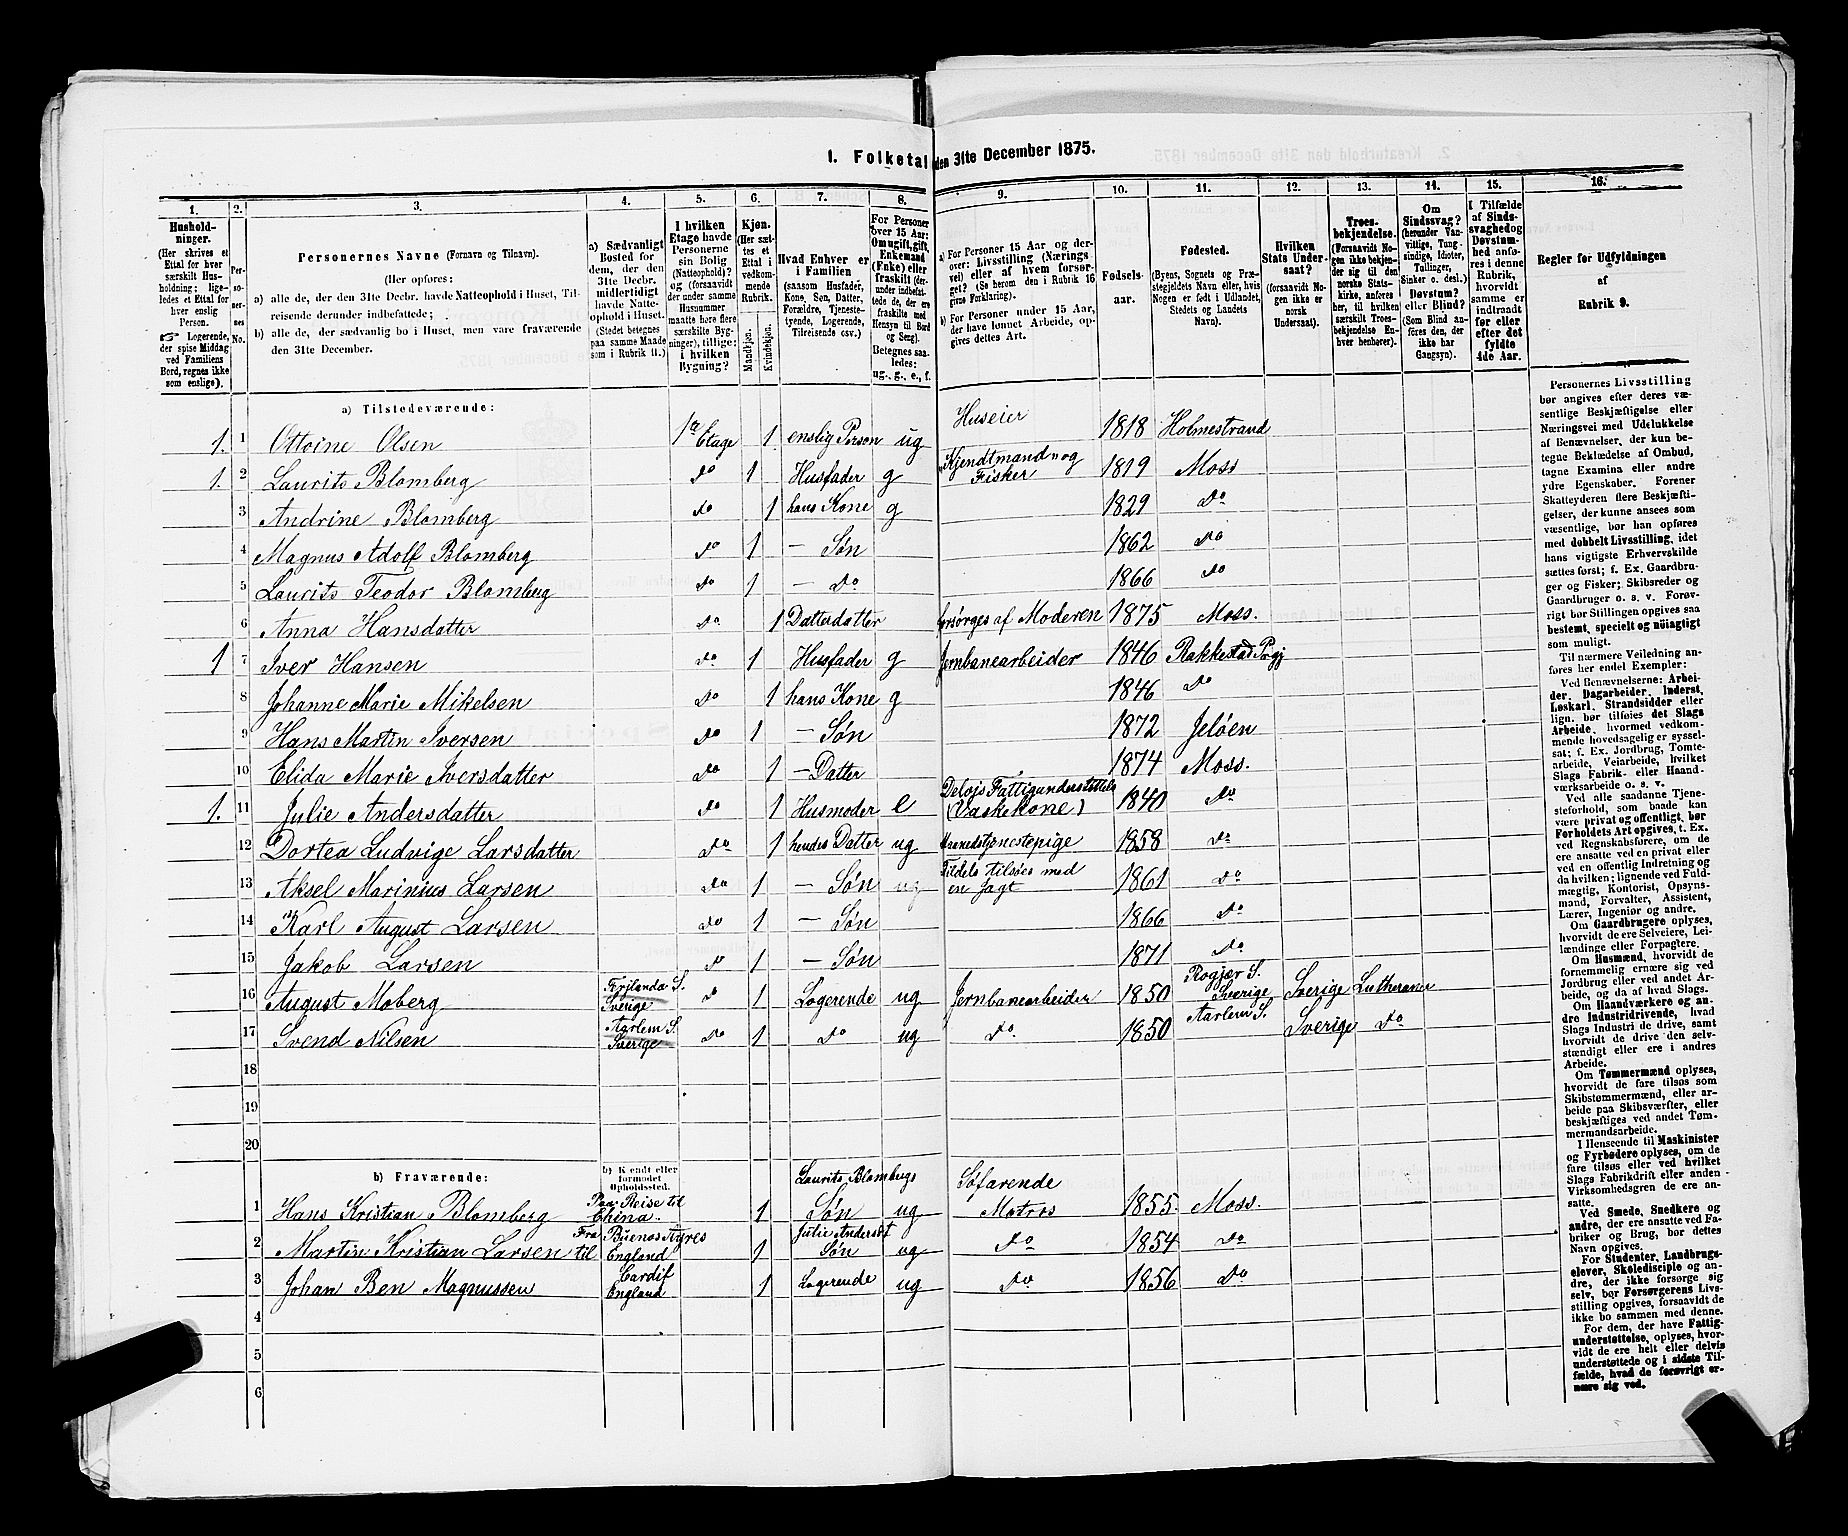 1. Folketal den 31te December 1875.
1. 2. 3. 4. 5. 6. 7. 8. 9. 10. 11. 12. 13. 14. 15. 16.
Husholdninger.
(Her skrives et Ettal for hver særskilt Husholdning; ligeledes et Ettal for hver enslig Person.
Logerende, der spise Middag ved Familiens Bord, regnes ikke som enslige).
Personernes No.
Personernes Navne (Fornavn og Tilnavn).
(Her opføres:
a) alle de, der den 31te Decbr. havde Natteophold i Huset, Tilreisende derunder indbefattede;
b) alle de, der sædvanlig bo i Huset, men vare fraværende den 31te December.
a) Sædvanligt Bosted for dem, der den 31te Decbr. midlertidigt havde Natteophold i Huset. (Stedet betegnes paa samme Maade som i Rubrik 11.)
I hvilken Etage havde Personerne sin Bolig (Natteophold)? og (forsaavidt der under samme Husnummer maatte høre flere særskilte Bygninger), tillige: i hvilken Bygning?
Kjøn.
(Her sættes et Ettal i vedkommende Rubrik.
Mandkjøn. Kvindekjøn.
Hvad Enhver er i Familien
(saasom Husfader, Kone, Søn, Datter, Forældre, Tjenestetyende, Logerende, Tilreisende osv.)
For Personer over 15 Aar: Omugift, gift, Enkemand (Enke) eller fraskilt (derunder indbefattede de, der ere fraskilte med Hensyn til Bord og Seng).
Betegnes saaledes: ug., g., e., f.
a) For Personer 15 Aar og derover: Livsstilling (Næringsvei) eller af hvem forsørget? (Se herom den i Rubrik 16 givne Forklaring).
b) For Personer under 15 Aar, der have lønnet Arbeide, opgives dettes Art.
Fødselsaar.
Fødested.
(Byens, Sognets og Præstegjeldets Navn, eller, hvis Nogen er født i Udlandet, Stedets og Landets Navn).
Hvilken Stats Undersaat?
(forsaavidt Nogen ikke er norsk Undersaat).
Troesbekjendelse.
(Forsaavidt Nogen ikke bekjender sig til den norske Statskirke, anføres her, til hvilken særskilt Troesbekjendelse Enhver henhører).
Om Sindssvag? (herunder Vanvittige, Tungsindige, Idioter, Tullinger, Sinker o. desl.)
Døvstum? eller Blind? (Som Blind anføres den, der ikke har Gangsyn).
I Tilfælde af Sindssvaghed og Døvstumhed anføres i denne Rubrik, hvorvidt samme er indtraadt før eller efter det fyldte 4de Aar.
Regler for Udfyldningen af Rubrik 9.
a) Tilstedeværende:
1. 1 Ottoine Olsen 1ste Etage 1 enslig Person ug Huseier 1818 Holmestrand
1. 2 Laurits Blomberg do 1 Husfader g Kjendtmand og Fisker 1819 Moss
3 Andrine Blomberg do 1 hans Kone g 1829 do
4 Magnus Adolf Blomberg do 1 — Søn 1862 do
5 Laurits Teodor Blomberg do 1 — do 1866 do
6 Anna Hansdatter do 1 Datterdatter forsørges af Moderen 1875 Moss.
1 7 Iver Hansen do 1 Husfader g Jernbanearbeider 1846 Rakkestad Pgj
8 Johanne Marie Mikelsen do 1 hans Kone g 1846 do
9 Hans Martin Iversen do 1 — Søn 1872 Jeløen
10 Elida Marie Iversdatter do 1 — Datter 1874 Moss.
1. 11 Julie Andersdatter do 1 Husmoder e Delvis Fattigunderstøttelse (Vaskekone) 1840 do
12 Dortea Ludvige Larsdatter do 1 hendes Datter ug Maanedstjenestepige 1858 do
13 Aksel Marinius Larsen do 1 — Søn ug Tildels tilsøes med en Jagt 1861 do
14 Karl August Larsen do 1 — Søn 1866 do
15 Jakob Larsen do 1 — Søn 1871 do
16 August Moberg Frilanda S. Sverige do 1 Logerende ug Jernbanearbeider 1850 Rogjær S. Sverige Sverige Lutheraner
17 Svend Nilsen Aarlem S. Sverige do 1 do ug do 1850 Aarlem S. Sverige do
18
19
20
b) Fraværende:
b) Kjendt eller formodet Opholdssted.
1 Hans Kristian Blomberg Paa Reise til China. 1 Laurits Blombergs Søn ug Søfarende Matros 1855. Moss.
2 Martin Kristian Larsen Fra Buenos Ayres til England 1 Julie Andersdt Søn ug do 1854 do
3 Johan Ben Magnussen Cardif England 1 Logerende ug do 1856 do
4
5
6
Personernes Livsstilling bør angives efter deres væsentlige Beskjæftigelse eller Næringsvei med Udelukkelse af Benævnelser, der kun betegne Beklædelse af Ombud, tagne Examina eller andre ydre Egenskaber. Forener Skatteyderen flere Beskjæftigelser, der kunne ansees som væsentlige, bør han opføres med dobbelt Livsstilling, idet hans vigtigste Erhvervskilde sættes først; f. Ex. Gaardbruger og Fisker; Skibsreder og Gaardbruger o. s. v. Forøvrigt bør Stillingen opgives saa bestemt, specielt og nøiagtigt som muligt.
Til nærmere Veiledning anføres her endel Exempler:
Ved Benævnelserne: Arbeider, Dagarbeider, Inderst, Løskarl, Strandsidder eller lign. bør tilføies det Slags Arbeide, hvormed vedkommende hovedsagelig er sysselsat; f. Ex. Jordbrug, Tomtearbeide, Veiarbeide, hvilket Slags Fabrik- eller Haandværksarbeide o. s. v.
Ved alle saadanne Tjenesteforhold, som baade kan være privat og offentligt, bør Forholdets Art opgives, t. Ex. ved Regnskabsførere, om de ere ansatte ved en privat eller ved en offentlig Indretning og da hvilken; lignende ved Fuldmægtig, Kontorist, Opsynsmand, Forvalter, Assistent, Lærer, Ingeniør og andre.
Om Gaardbrugere oplyses, hvorvidt de ere Selveiere, Leilændinge eller Forpagtere.
Om Husmænd, hvorvidt de fornemmelig ernære sig ved Jordbrug eller ved andet Arbeide, og da af hvad Slags.
Om Haandværkere og andre Industridrivende, hvad Slags Industri de drive, samt hvorvidt de drive den selvstændigt eller ere i andres Arbeide.
Om Tømmermænd oplyses, hvorvidt de fare tilsøs som Skibstømmermænd, eller arbeide paa Skibsværfter, eller beskjæftiges ved andet Tømmermandsarbeide.
I Henseende til Maskinister og Fyrbødere oplyses, om de fare tilsøs eller ved hvilket Slags Fabrikdrift eller anden Virksomhedsgren de ere ansatte.
Ved Smede, Snedkere og andre, der ere ansatte ved Fabriker og Brug, bør dettes Navn opgives.
For Studenter, Landbrugselever, Skoledisciple og andre, der ikke forsørge sig selv, bør Forsørgerens Livsstilling opgives, forsaavidt de ikke bo sammen med denne.
For dem, der have Fattigunderstøttelse, oplyses, hvorvidt de ere helt eller delvis understøttede og i sidste Tilfælde, hvad de forøvrigt ernære sig ved.